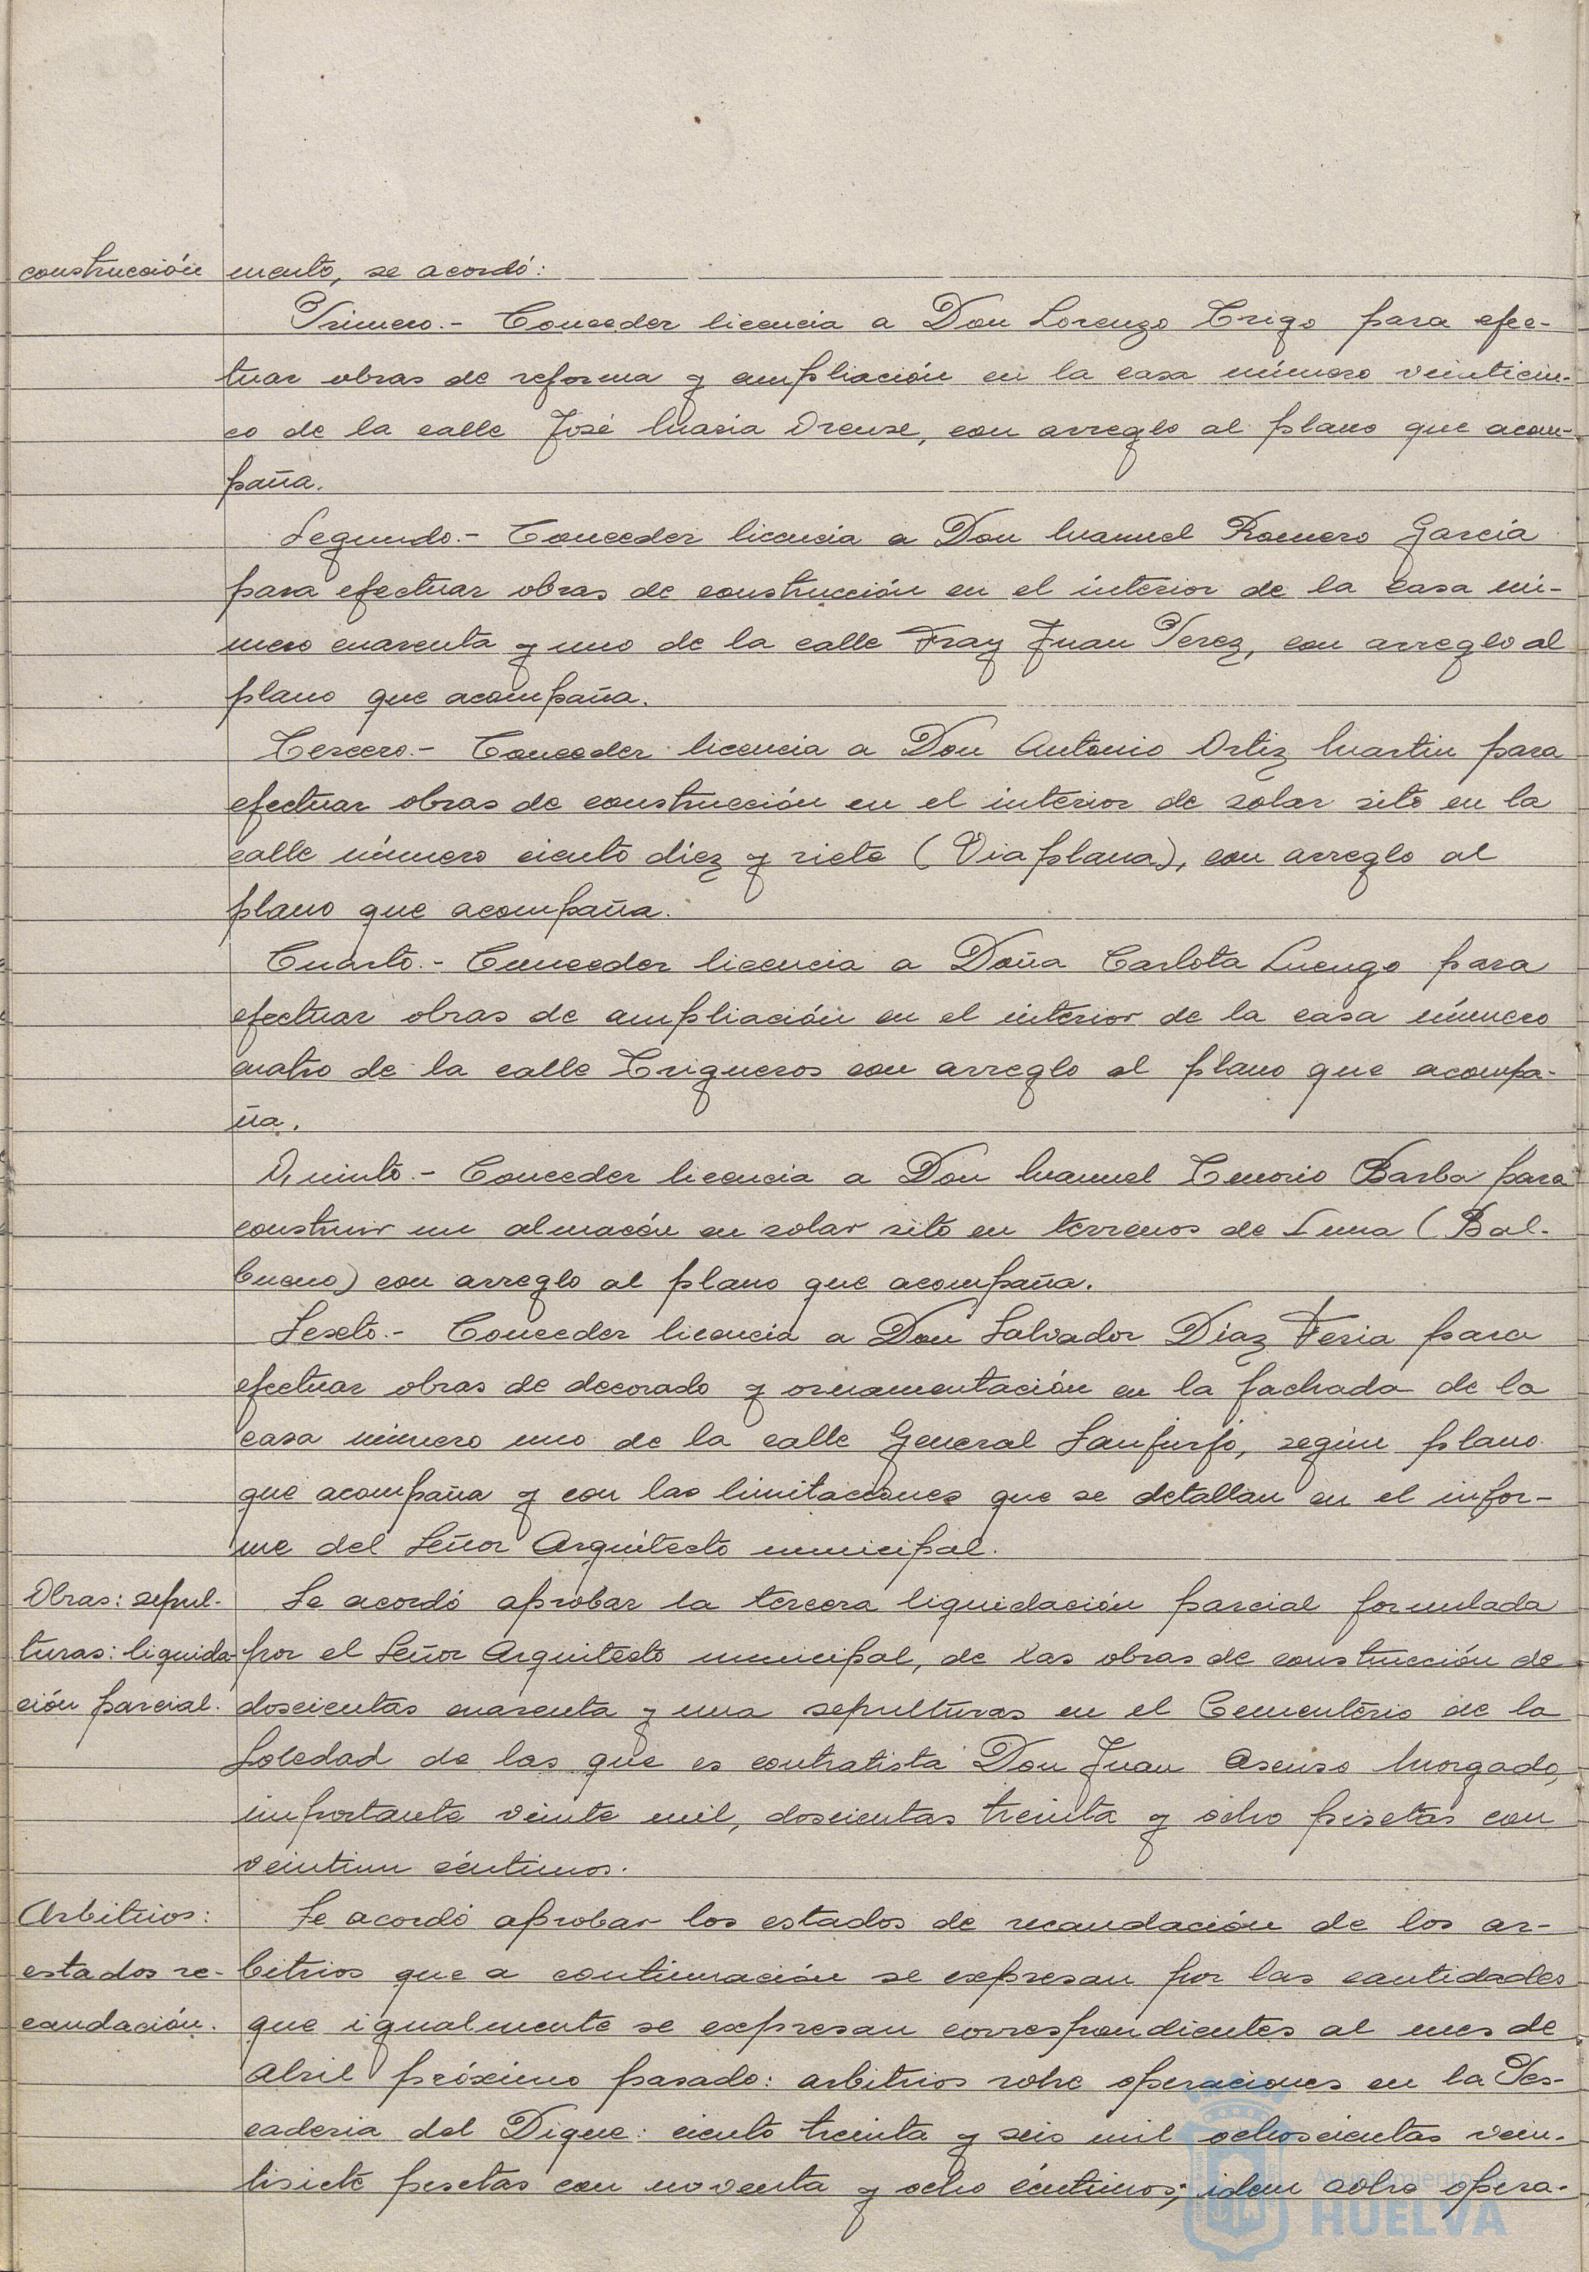 construcción mento, se acordó:
Primero.- Conceder licencia a Don Lorenzo Trigo para efec-
tuar obras de reforma y ampliación en la casa número veinticin-
co de la calle José Maria Orense, con arreglo al plano que acom-
paña.
Segundo.- Conceder licencia a Don Manuel Romero García
para efectuar obras de construcción en el interior de la casa nú-
mero cuarenta y uno de la calle Fray Juan Perez, con arreglo al
plano que acompaña.
Tercero.- Conceder licencia a Don Antonio Ortiz Martin para
efectuar obras de construcción en el interior de solar sito en la
calle número ciento diez y siete (Viaplana), con arreglo al
plano que acompaña.
Cuarto.- Conceder licencia a Doña Carlota Luengo para
efectuar obras de ampliación en el interior de la casa número
cuatro de la calle Trigueros con arreglo al plano que acompa-
ña.
Quinto.- Conceder licencia a Don Manuel Tenorio Barba para
construir un almacén en solar sito en terrenos de Luna (Bal-
bueno) con arreglo al plano que acompaña.
Sexto.- Conceder licencia a Don Salvador Díaz Feria para
efectuar obras de decorado y ornamentación en la fachada de la
casa número uno de la calle General Sanjurjo, según plano
que acompaña y con las limitaciones que se detallan en el infor-
me del Señor Arquitecto municipal.
Obras: sepul- Se acordó aprobar la tercera liquidación parcial formulada
turas: liquida- por el Señor Arquitecto municipal, de las obras de construcción de
ción parcial. doscientas cuarenta y una sepulturas en el Cementerio de la
Soledad de las que es contratista Don Juan Asenso Morgado,
importante veinte mil, doscientas treinta y ocho pesetas con
veintiun céntimos.
Arbitrios: Se acordó aprobar los estados de recaudación de los ar-
estados re- bitrios que a continuación se expresan por las cantidades
caudación. que igualmente se expresan correspondientes al mes de
Abril próximo pasado: arbitrios sobre operaciones en la Pes-
caderia del Dique: ciento treinta y seis mil ochocientas vein-
tisiete pesetas con noventa y ocho céntimos; idem sobre opera-
Ayuntamiento de
HUELVA